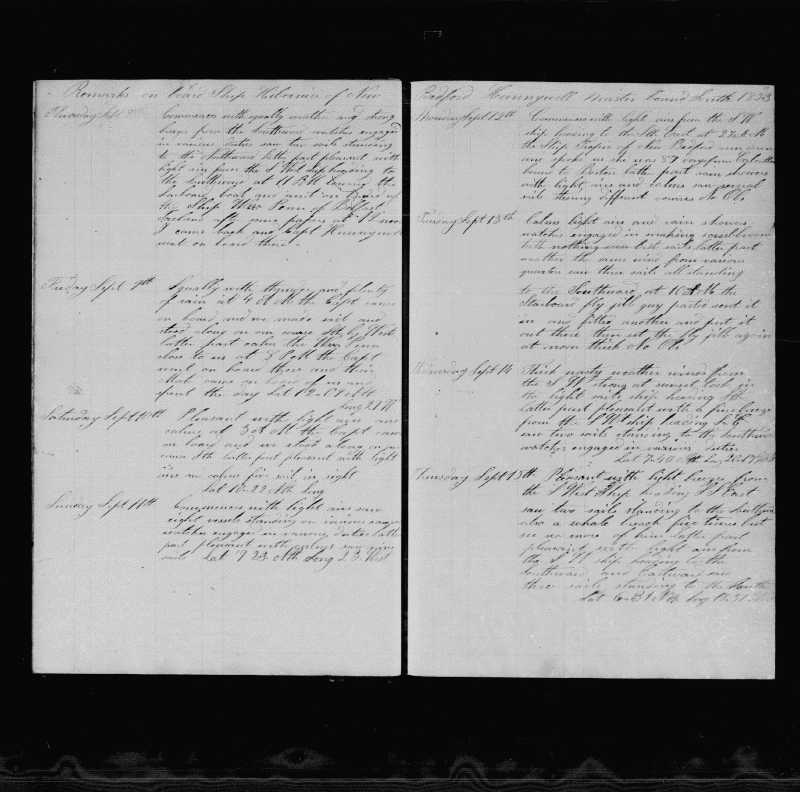 Remarks on board Ship Hibernia of New
Thursday Sept 8th Commences with squally weather and strong
breeze from the Southward watches engaged
in various duties saw two sails standing
to the Northward latter part pleasant with
light airs from the S West ship heading to
the Southward at 11 AM lowered the
larboard boat and went on board of
the Ship Wm Penn of Belfast
Ireland after some papers at
I came back and Capt Hunnywell
went on board there
Friday Sept 9th Squally with thunder and plenty
of rain at 4 PM the Capt came
on board and we made sail and
stood along on our course Sth by West
latter part calm the Wm Penn
close to us at 8 PM the Capt
went on board there and their
Mate came on board of us and
spent the day Lat 12-09 Nth
Long 27 W
Saturday Sept 10th Pleasant with light airs and
calms at 3 PM the Capt came
on board and we stood along on our
course Sth latter part pleasant with light
airs and calms five sail in sight
Lat 10-29 Nth Long
Sunday Sept 11th Commences with light airs saw
eight vessels standing on various courses
watches engaged in various duties latter
part pleasant with saw nine
sails Lat 9 23 Nth Long 23 West
Bedford Hunnywell Master bound South 1853
Monday Sept 12th Commences with light airs from the S W
ship heading to the Sth East at 2 PM
the Ship of New Bedford ran down
and spoke us she was 87 days from Calcutta
bound to Boston latter part rain showers
with light airs and calms saw several
sails steering different courses No Obs
Tuesday Sept 13th Calms light airs and rain showers
watches engaged in making
nothing seen but sails latter part
weather the same wind from various
quarter saw three sails all standing
to the Southward at 10 AM the
Starboard fly jill guy parted sent it
in and fitted another and put it
out there then set the fly jill again
at noon thick No Obs
Wednesday Sept 14 Thick nasty weather winds from
the S W strong at sunset took in
the light sails ship heading
latter part pleasant with a fine breeze
from the S West ship heading S E
saw two sails standing to the Southward
watches engaged in various duties
Lat 7-40 Nth Long
Thursday Sept 15th Pleasant with light breeze from
the S West Ship heading S S East
saw two sails standing to the Southward
also a whale breach five times but
see no more of him latter part
pleasant with light airs from
the S W ship heading to the
Southward and Eastward saw
three sails standing to the South
Lat 6-31 Nth Long